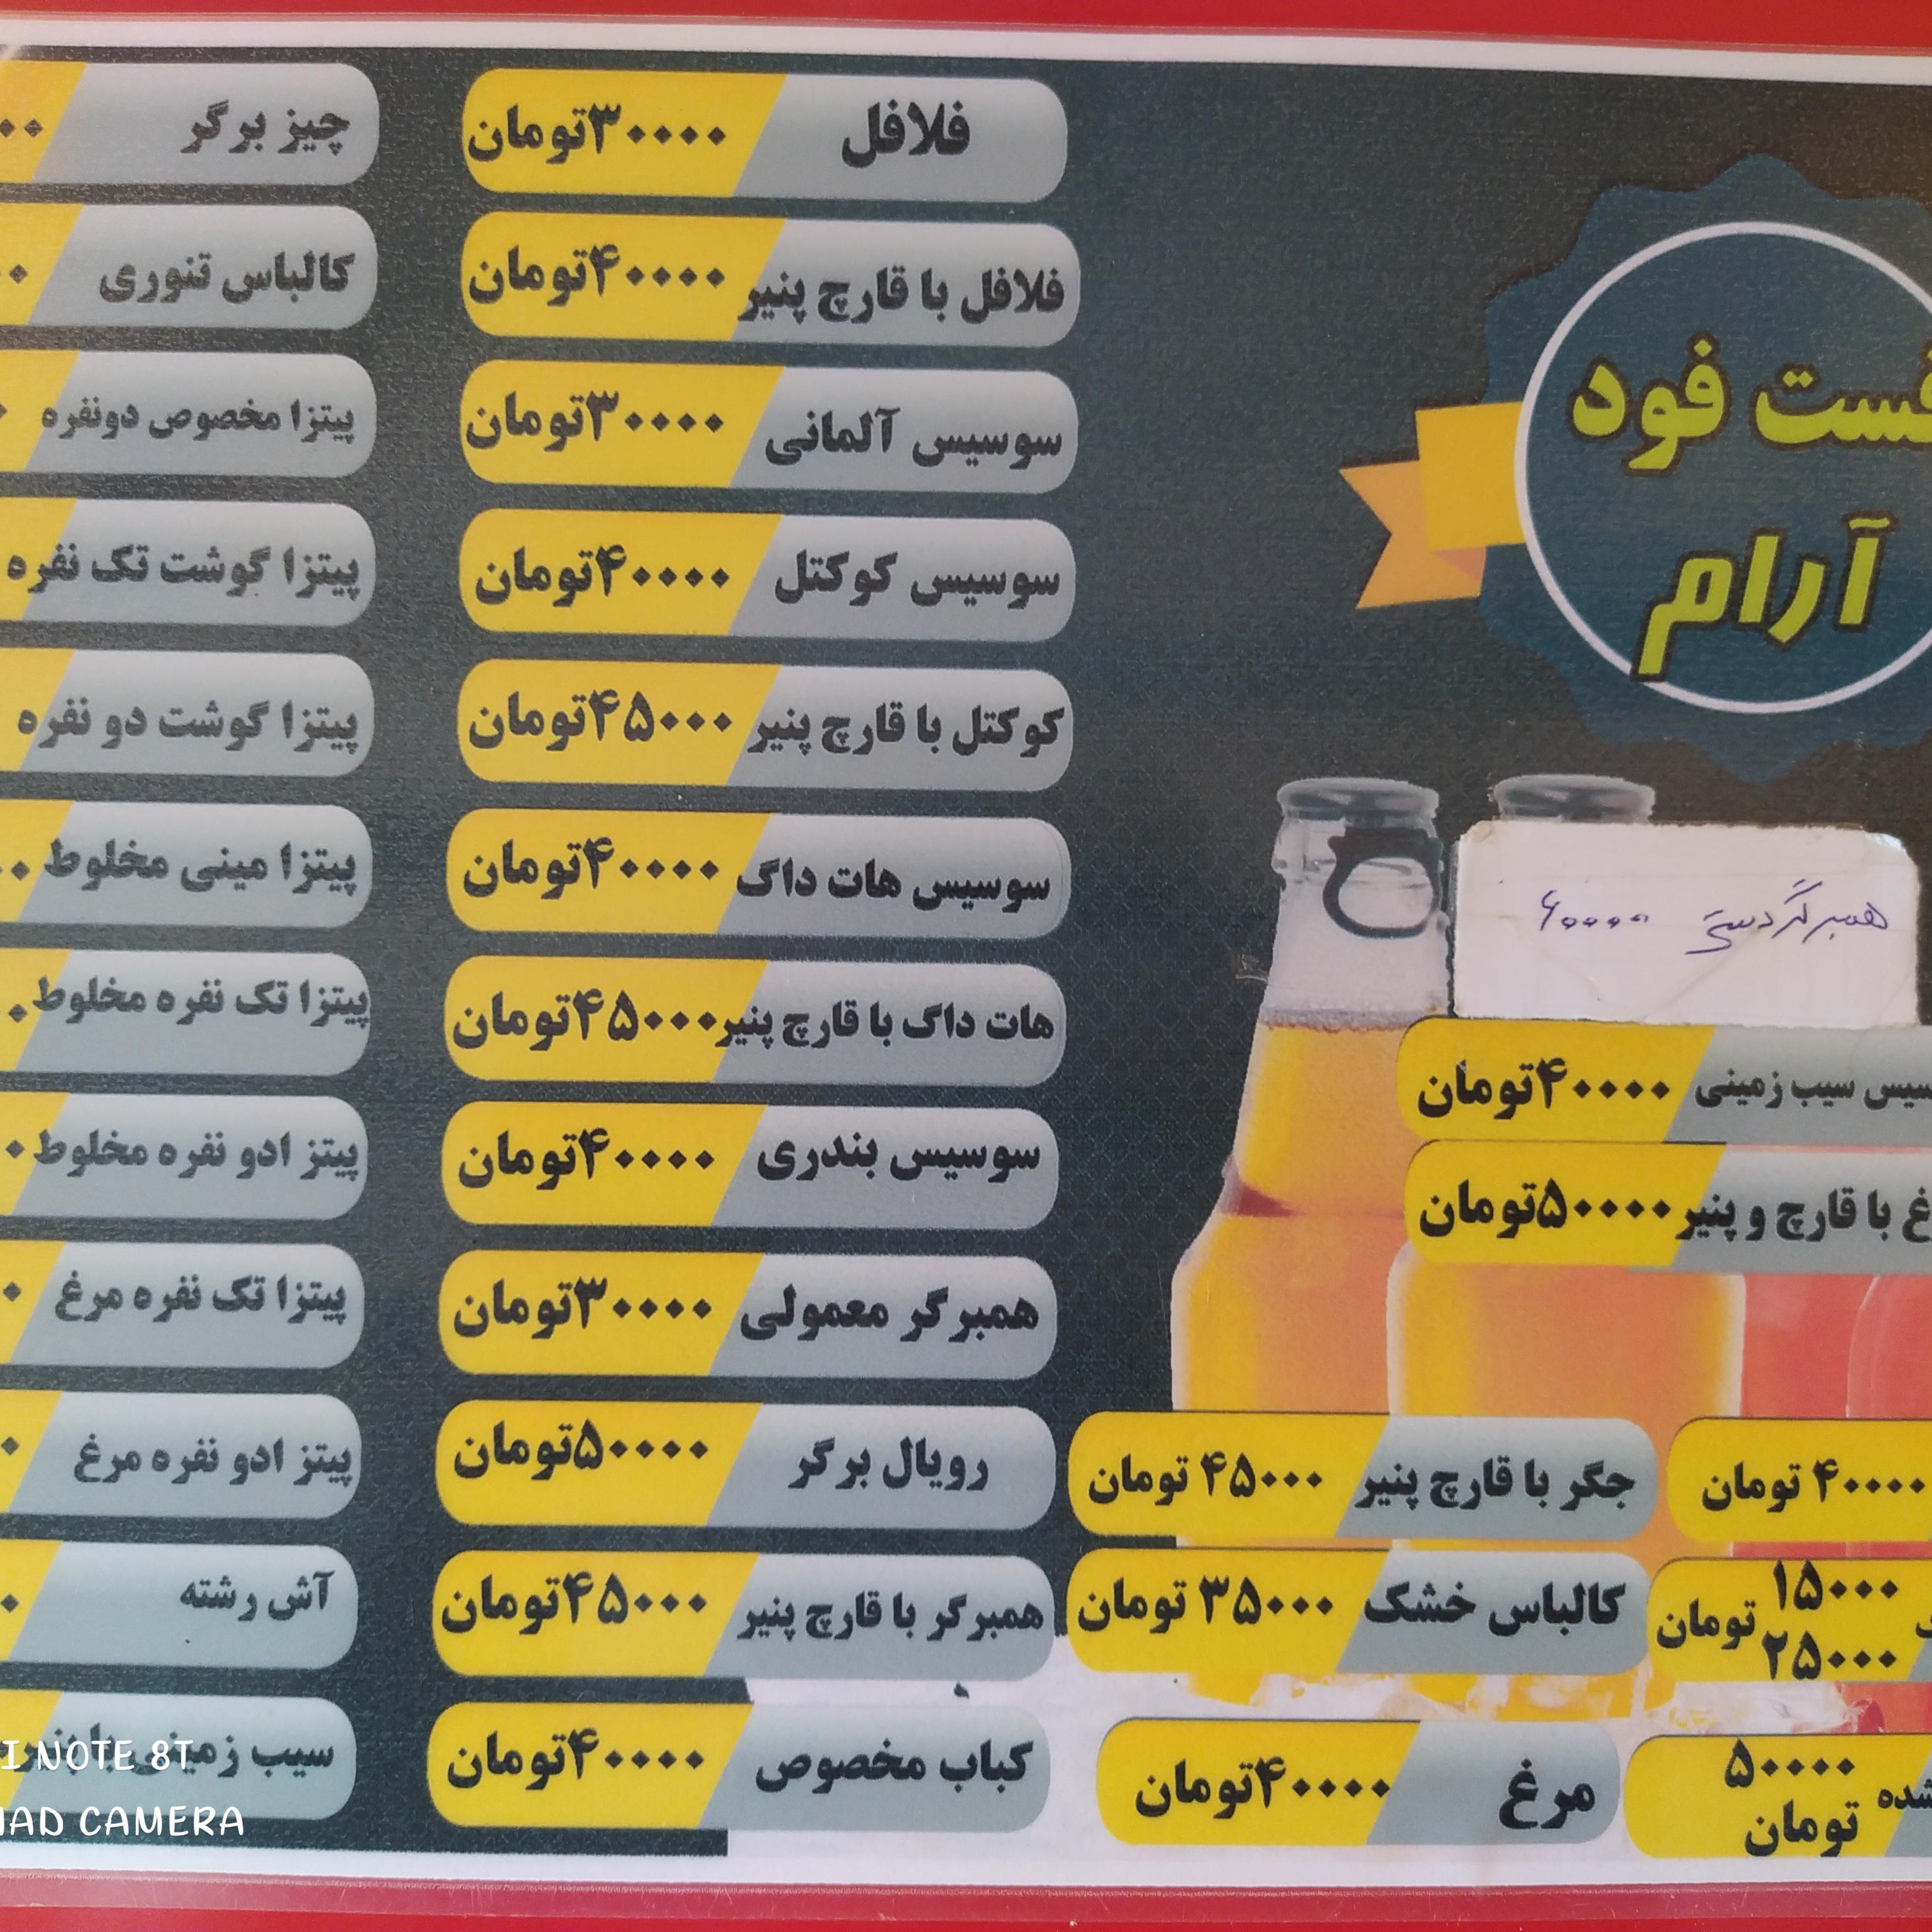 فست فود
آرام
همبرگر دستی ۶۰۰۰۰
سیب زمینی ۴۰۰۰۰تومان
با قارچ و پنیر ۵۰۰۰۰تومان
۴۰۰۰۰ تومان
۱۵۰۰۰
تومان
۲۵۰۰۰
شده ۵۰۰۰۰
تومان
جگر با قارچ پنیر ۴۵۰۰۰ تومان
کالباس خشک ۳۵۰۰۰ تومان
مرغ ۴۰۰۰۰تومان
فلافل ۳۰۰۰۰تومان
فلافل با قارچ پنیر ۴۰۰۰۰تومان
سوسیس آلمانی ۳۰۰۰۰تومان
سوسیس کوکتل ۴۰۰۰۰تومان
کوکتل با قارچ پنیر ۴۵۰۰۰تومان
سوسیس هات داگ ۴۰۰۰۰تومان
هات داگ با قارچ پنیر ۴۵۰۰۰تومان
سوسیس بندری ۴۰۰۰۰تومان
همبرگر معمولی ۳۰۰۰۰تومان
رویال برگر ۵۰۰۰۰تومان
همبرگر با قارچ پنیر ۴۵۰۰۰تومان
کباب مخصوص ۴۰۰۰۰تومان
چیز برگر
کالباس تنوری
پیتزا مخصوص دونفره
پیتزا گوشت تک نفره
پیتزا گوشت دو نفره
پیتزا مینی مخلوط
پیتزا تک نفره مخلوط
پیتز ادو نفره مخلوط
پیتزا تک نفره مرغ
پیتز ادو نفره مرغ
آش رشته
سیب زمینی با پنیر
NOTE 8T
CAMERA